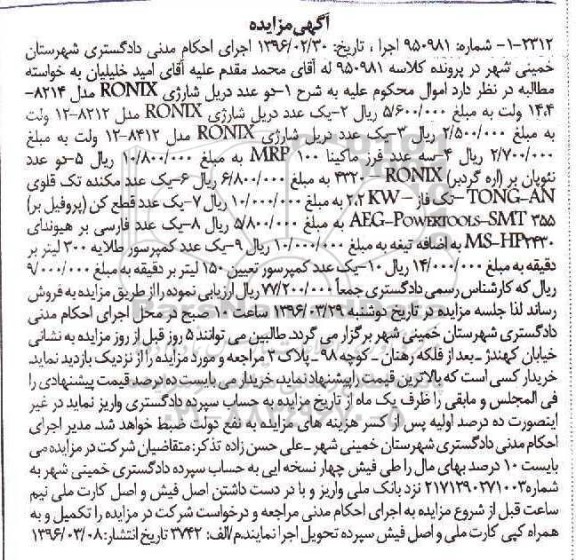 آگهی مزایده
۱-۲۳۱۲- شماره: ۹۵۰۹۸۱ اجرا ، تاریخ: ۱۳۹۶/۰۲/۳۰ اجرای احکام مدنی دادگستری شهرستان
خمینی شهر در پرونده کلاسه ۹۵۰۹۸۱ له آقای محمد مقدم علیه آقای امید خلیلیان به خواسته
مطالبه در نظر دارد اموال محکوم علیه به شرح ۱-دو عدد دریل شارژی RONIX مدل ۸۲۱۴-
۱۴.۴ ولت به مبلغ ۵/۶۰۰/۰۰۰ ریال ۲-یک عدد دریل شارژی RONIX مدل ۸۲۱۲-۱۲ ولت
به مبلغ ۲/۵۰۰/۰۰۰ ریال ۳-یک عدد دریل شارژی RONIX مدل ۸۴۱۲-۱۲ ولت به مبلغ
۲/۷۰۰/۰۰۰ ریال ۴-سه عدد فرز ماکیتا MRP ۱۰۰ به مبلغ ۱۰/۸۰۰/۰۰۰ ریال ۵-دو عدد
نئوپان بر (اره گردبر) RONIX-۴۳۲۰ به مبلغ ۶/۸۰۰/۰۰۰ ریال ۶-یک عدد مکنده تک قلوی
TONG-AN -تک فاز - ۲.۲ KW به مبلغ ۱۰/۰۰۰/۰۰۰ ریال ۷-یک عدد قطع کن (پروفیل بر)
AEG-POWERTOOLS-SMT ۳۵۵ به مبلغ ۵/۸۰۰/۰۰۰ ریال ۸-یک عدد فارسی بر هیوندای
MS-HP۲۴۳۰ به اضافه تیغه به مبلغ ۱۰/۰۰۰/۰۰۰ ریال ۹-یک عدد کمپرسور طلایه ۳۰۰ لیتر بر
دقیقه به مبلغ ۱۴/۰۰۰/۰۰۰ ریال ۱۰-یک عدد کمپرسور تعیین ۱۵۰ لیتر بر دقیقه به مبلغ ۹/۰۰۰/۰۰۰
ریال که کارشناس رسمی دادگستری جمعاً ۷۷/۲۰۰/۰۰۰ ریال ارزیابی نموده را از طریق مزایده به فروش
رساند لذا جلسه مزایده در تاریخ دوشنبه ۱۳۹۶/۰۳/۲۹ ساعت ۱۰ صبح در محل اجرای احکام مدنی
دادگستری شهرستان خمینی شهر برگزار می گردد. طالبین می توانند ۵ روز قبل از روز مزایده به نشانی
خیابان کهندژ ـ بعد از فلکه رهنان ـ کوچه ۹۸ ـ پلاک ۳ مراجعه و مورد مزایده را از نزدیک بازدید نماید.
خریدار کسی است که بالاترین قیمت را پیشنهاد نماید، خریدار می بایست ده درصد قیمت پیشنهادی را
فی المجلس و مابقی را ظرف یک ماه از تاریخ مزایده به حساب سپرده دادگستری واریز نماید در غیر
اینصورت ده درصد اولیه پس از کسر هزینه های مزایده به نفع دولت ضبط خواهد شد. مدیر اجرای
احکام مدنی دادگستری شهرستان خمینی شهر ـ علی حسن زاده تذکر: متقاضیان شرکت در مزایده می
بایست ۱۰ درصد بهای مال را طی فیش چهار نسخه ایی به حساب سپرده دادگستری خمینی شهر به
شماره ۲۱۷۱۲۹۰۲۷۱۰۰۳ نزد بانک ملی واریز و با در دست داشتن اصل فیش و اصل کارت ملی نیم
ساعت قبل از شروع مزایده به اجرای احکام مدنی مراجعه و درخواست شرکت در مزایده را تکمیل و به
همراه کپی کارت ملی و اصل فیش سپرده تحویل اجرا نمایند.م/الف: ۳۷۴۲ تاریخ انتشار: ۱۳۹۶/۰۳/۰۸